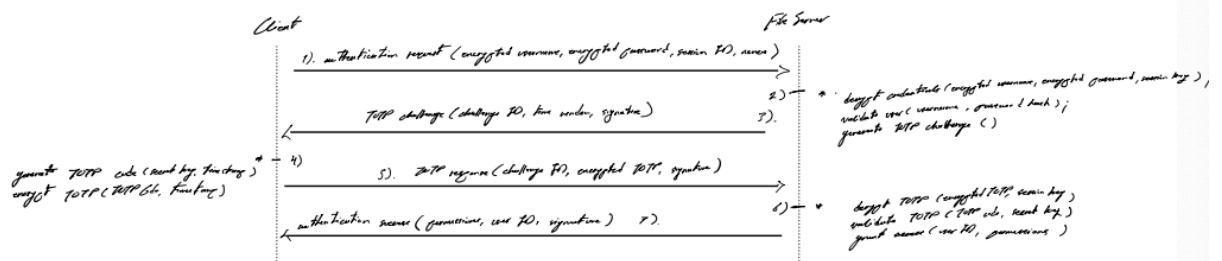 Client
File Server
1). authentication request (encrypted username, encrypted password, session ID, nonce)
2) - * decrypt credentials (encrypted username, encrypted password, session key),
validate user (username, password hash);
generate TOTP challenge ()
TOTP challenge (challenge ID, time window, signature) 3).
* - 4)
generate TOTP code (secret key, timestamp)
encrypt TOTP (TOTP Code, timestamp)
5). TOTP response (challenge ID, encrypted TOTP, signature)
6) - * decrypt TOTP (encrypted TOTP, session key)
validate TOTP (TOTP code, secret key)
grant access (user ID, permissions)
authentication success (permissions, user ID, signature) 7).